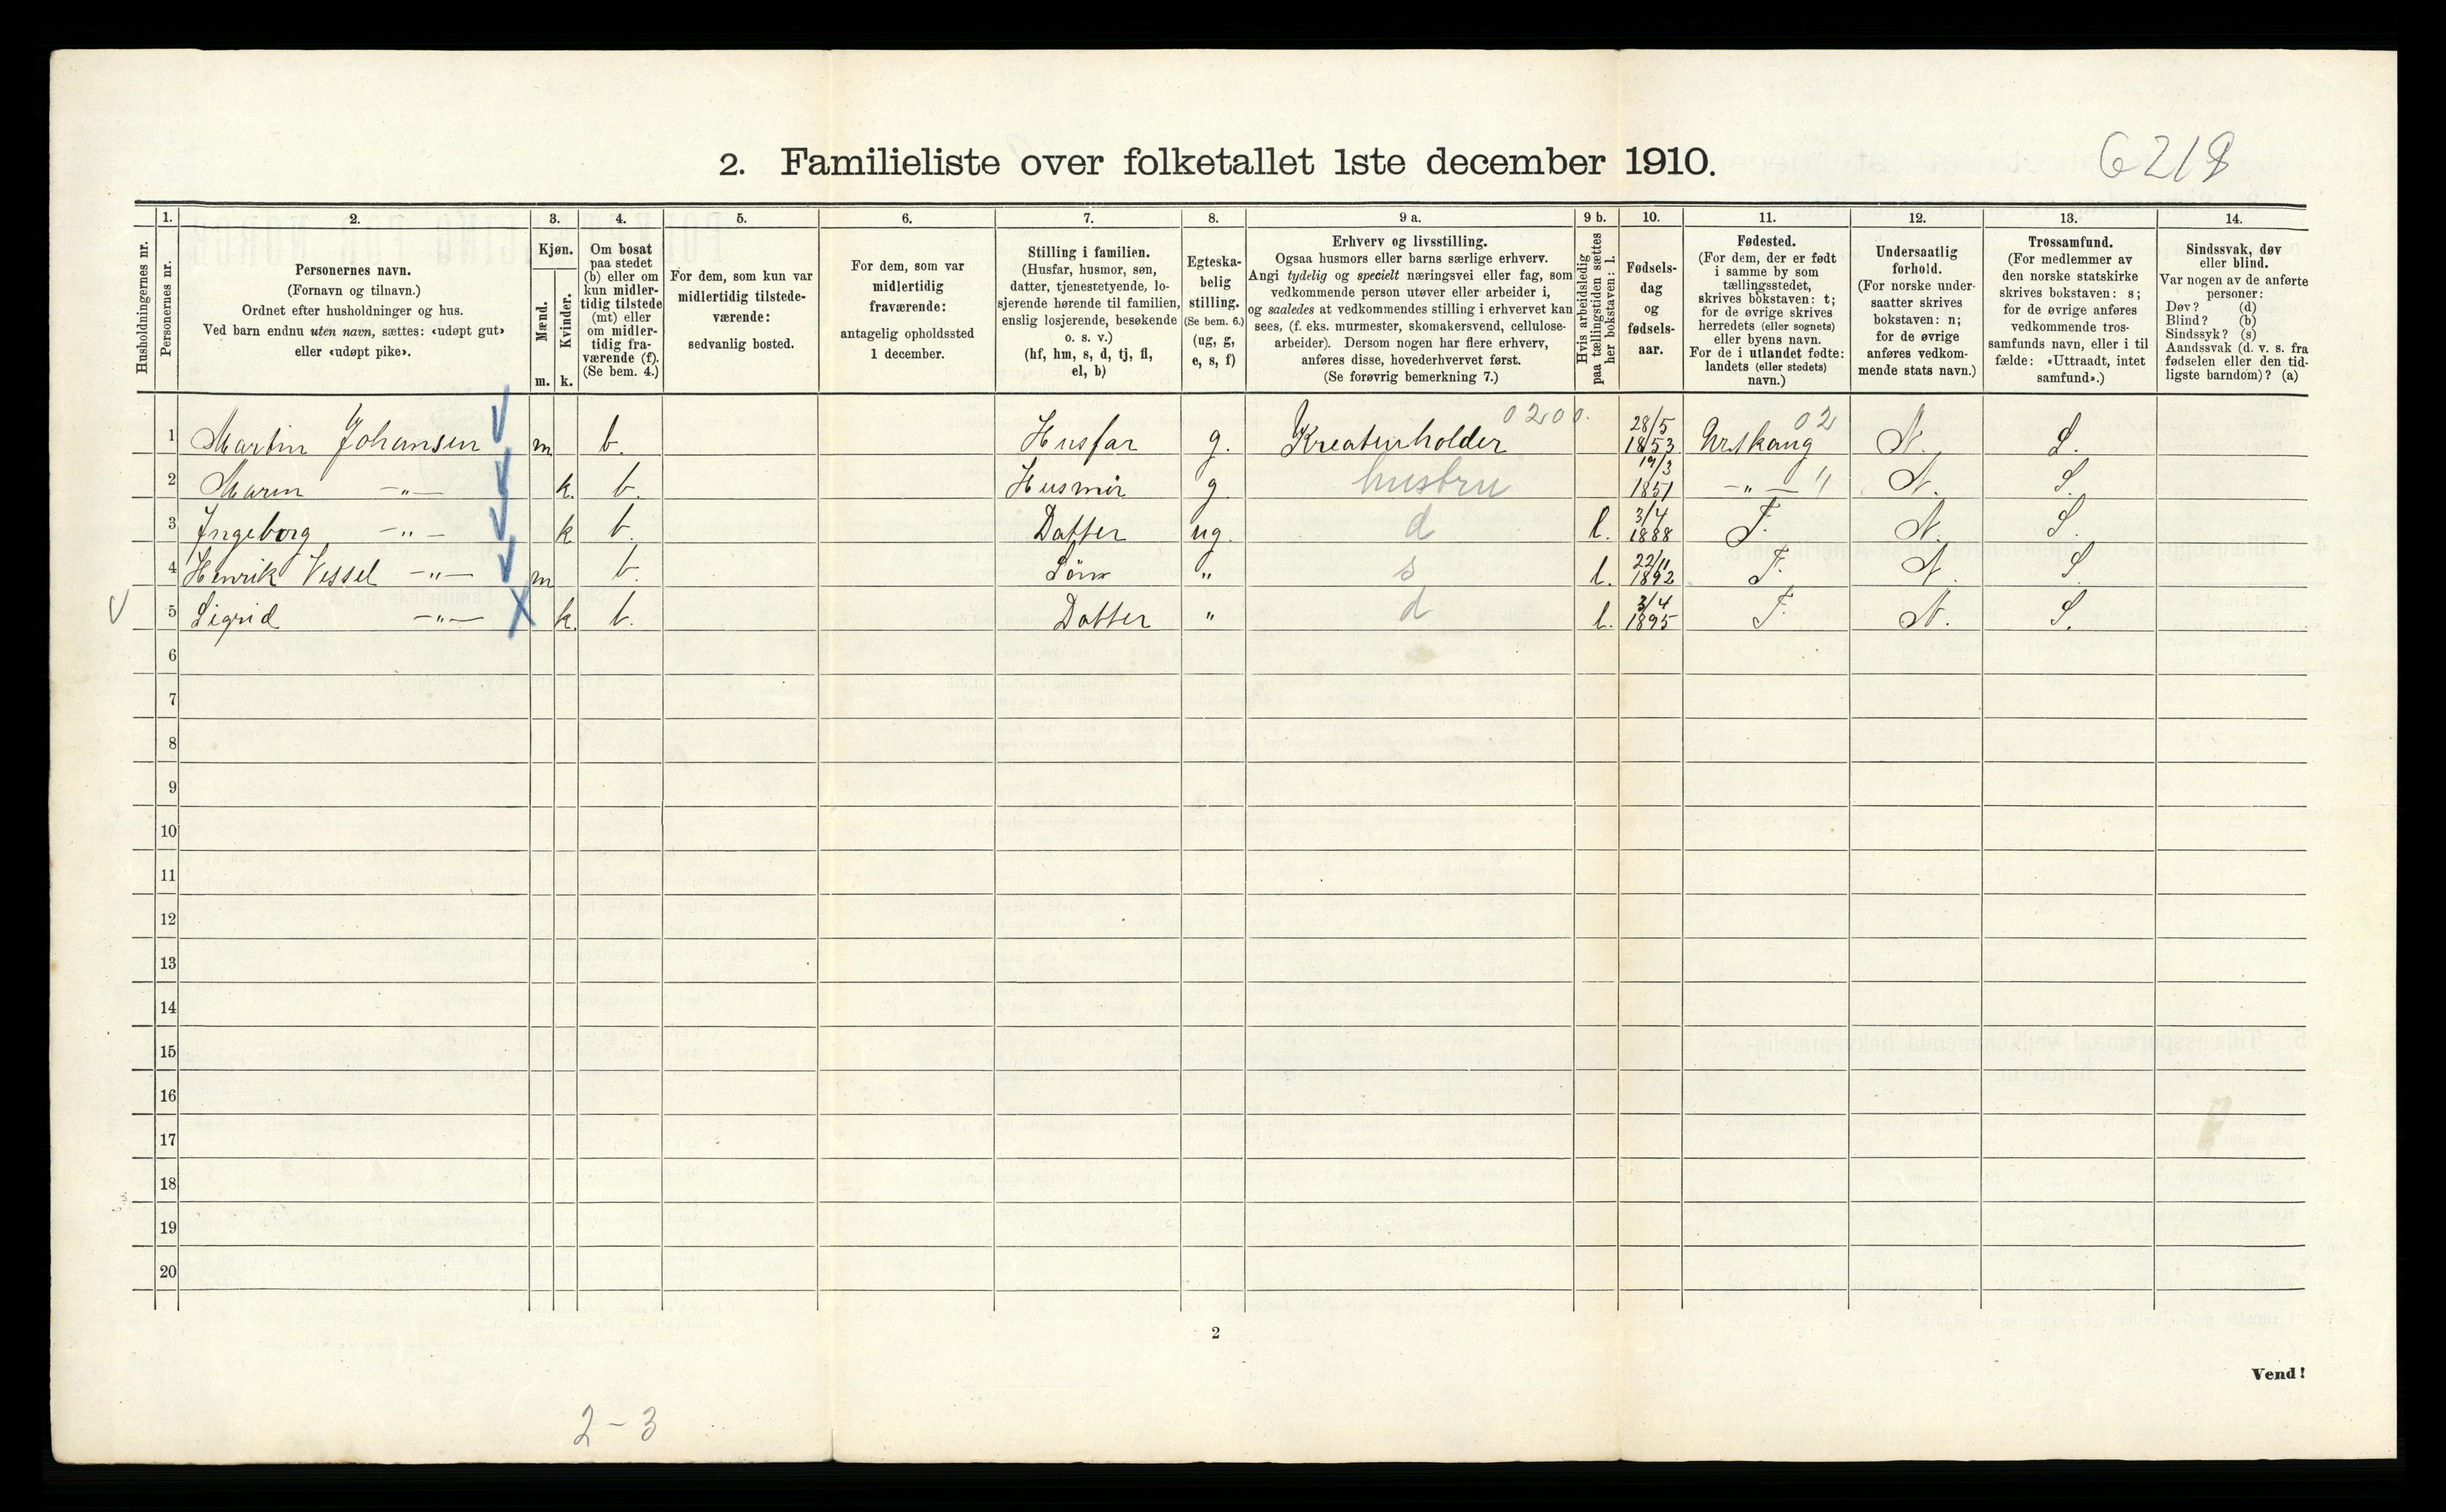 2. Familieliste over folketallet 1ste december 1910.
6218
Husholdningernes nr.
1.
Personernes nr.
2.
Personernes navn.
(Fornavn og tilnavn.)
Ordnet efter husholdninger og hus.
Ved barn endnu uten navn, sættes: «udøpt gut»
eller «udøpt pike».
3.
Kjøn.
Mænd.
Kvinder.
m. k.
4.
Om bosat
paa stedet
(b) eller om
kun midler-
tidig tilstede
(mt) eller
om midler-
tidig fra-
værende (f).
(Se bem. 4.)
5.
For dem, som kun var
midlertidig tilstede-
værende:
sedvanlig bosted.
6.
For dem, som var
midlertidig
fraværende:
antagelig opholdssted
1 december.
7.
Stilling i familien.
(Husfar, husmor, søn,
datter, tjenestetyende, lo-
sjerende hørende til familien,
enslig losjerende, besøkende
o. s. v.)
(hf, hm, s, d, tj, fl,
el, b)
8.
Egteska-
belig
stilling.
(Se bem. 6.)
(ug, g,
e, s, f)
9 a.
Erhverv og livsstilling.
Ogsaa husmors eller barns særlige erhverv.
Angi tydelig og specielt næringsvei eller fag, som
vedkommende person utøver eller arbeider i,
og saaledes at vedkommendes stilling i erhvervet kan
sees, (f. eks. murmester, skomakersvend, cellulose-
arbeider). Dersom nogen har flere erhverv,
anføres disse, hovederhvervet først.
(Se forøvrig bemerkning 7.)
9 b.
Hvis arbeidsledig
paa tællingstiden sættes
her bokstaven: l.
10.
Fødsels-
dag
og
fødsels-
aar.
11.
Fødested.
(For dem, der er født
i samme by som
tællingsstedet,
skrives bokstaven: t;
for de øvrige skrives
herredets (eller sognets)
eller byens navn.
For de i utlandet fødte:
landets (eller stedets)
navn.)
12.
Undersaatlig
forhold.
(For norske under-
saatter skrives
bokstaven: n;
for de øvrige
anføres vedkom-
mende stats navn.)
13.
Trossamfund.
(For medlemmer av
den norske statskirke
skrives bokstaven: s;
for de øvrige anføres
vedkommende tros-
samfunds navn, eller i til
fælde: «Uttraadt, intet
samfund».)
14.
Sindssvak, døv
eller blind.
Var nogen av de anførte
personer:
Døv? (d)
Blind? (b)
Sindssyk? (s)
Aandssvak (d. v. s. fra
fødselen eller den tid-
ligste barndom)? (a)
1 Martin Johansen m b. Husfar g. Kreaturholder 0200. 28/5 1853 Urskaug 02 N. S.
2 Maren -"- k. b. Husmor g. hustru 19/3 1851 -"- " N. S.
3 Ingeborg -"- k b. Datter ug. d l. 3/4 1888 T. N. S.
4 Henrik Vessel -"- m b. Sönn " s l. 22/11 1892 T. N. S.
5 Sigrid -"- k. b. Datter " d l. 3/4 1895 T. N. S.
6
7
8
9
10
11
12
13
14
15
16
17
18
19
20
2
Vend!
2-3